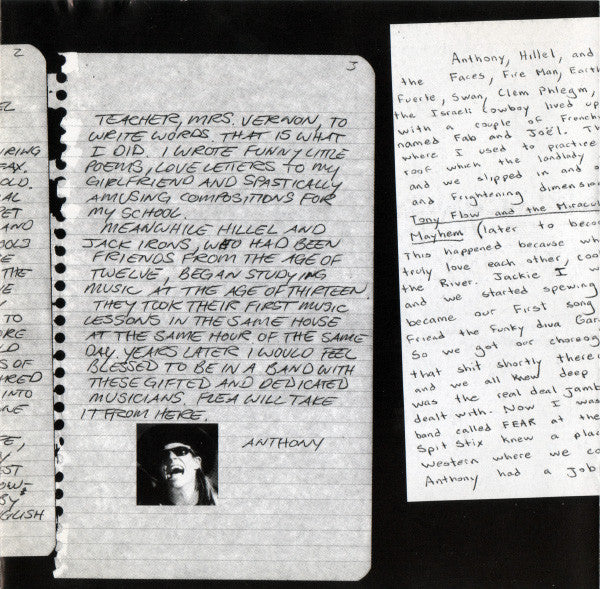 2
EL
URING
FAX.
OLD.
AL
PET
AND
OOLS
E
THE
VE
TO
ORE
LD
S OF
HRED
INTO
NE
PE,
Y
EST
OW-
BY
GLISH
3
TEACHER, MRS. VERNON, TO
WRITE WORDS. THAT IS WHAT
I DID. I WROTE FUNNY LITTLE
POEMS, LOVE LETTERS TO MY
GIRLFRIEND AND SPASTICALLY
AMUSING COMPOSITIONS FOR
MY SCHOOL.
MEANWHILE HILLEL AND
JACK IRONS, WHO HAD BEEN
FRIENDS FROM THE AGE OF
TWELVE, BEGAN STUDYING
MUSIC AT THE AGE OF THIRTEEN.
THEY TOOK THEIR FIRST MUSIC
LESSONS IN THE SAME HOUSE
AT THE SAME HOUR OF THE SAME
DAY. YEARS LATER I WOULD FEEL
BLESSED TO BE IN A BAND WITH
THESE GIFTED AND DEDICATED
MUSICIANS. FLEA WILL TAKE
IT FROM HERE.
ANTHONY
Anthony, Hillel, and
the Faces, Fire Man, Eart
Fuerte, Swan, Clem Phlegm,
the Israeli Cowboy lived up
with a couple of Frenchy
named Fab and Joël. Th
where I used to practice
roof which the landlady
and we slipped in and o
and frightening dimension
Tony Flow and the Miracul
Mayhem (later to becom
This happened because wh
truly love each other, coo
the River. Jackie I w
and we started spewing
became our first song
Friend the funky diva Gar
So we got our choreog
that shit shortly there
and we all knew deep
was the real deal Jamb
dealt with. Now I was
band called FEAR at the
Spit Stix knew a plac
Western where we co
Anthony had a Job